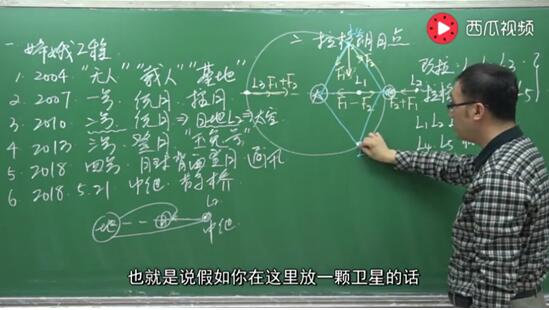 西瓜视频
一 嫦娥工程
1. 2004 "无人" "载人" "基地"
2. 2007 一号 绕月 撞月
3. 2010 二号 绕月 ⇒ 日地L2 ⇒ 太空
4. 2013 三号 登月 "玉兔号"
5. 2018 四号 月球背面登月 通讯
6. 2018.5.21 中继 鹊桥
地 月 L2
中继
二 拉格朗日点
L3 F1+F2
L1
F1-F2
L2
F2+F1
F1 F2
欧拉:
拉格
L1 L2
L4. L5
也就是说假如你在这里放一颗卫星的话